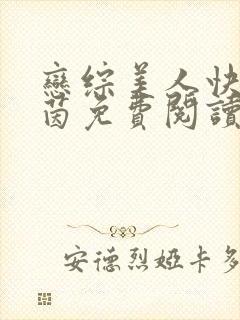 戀綜美人快
茵免費閱讀
安德烈婭卡多